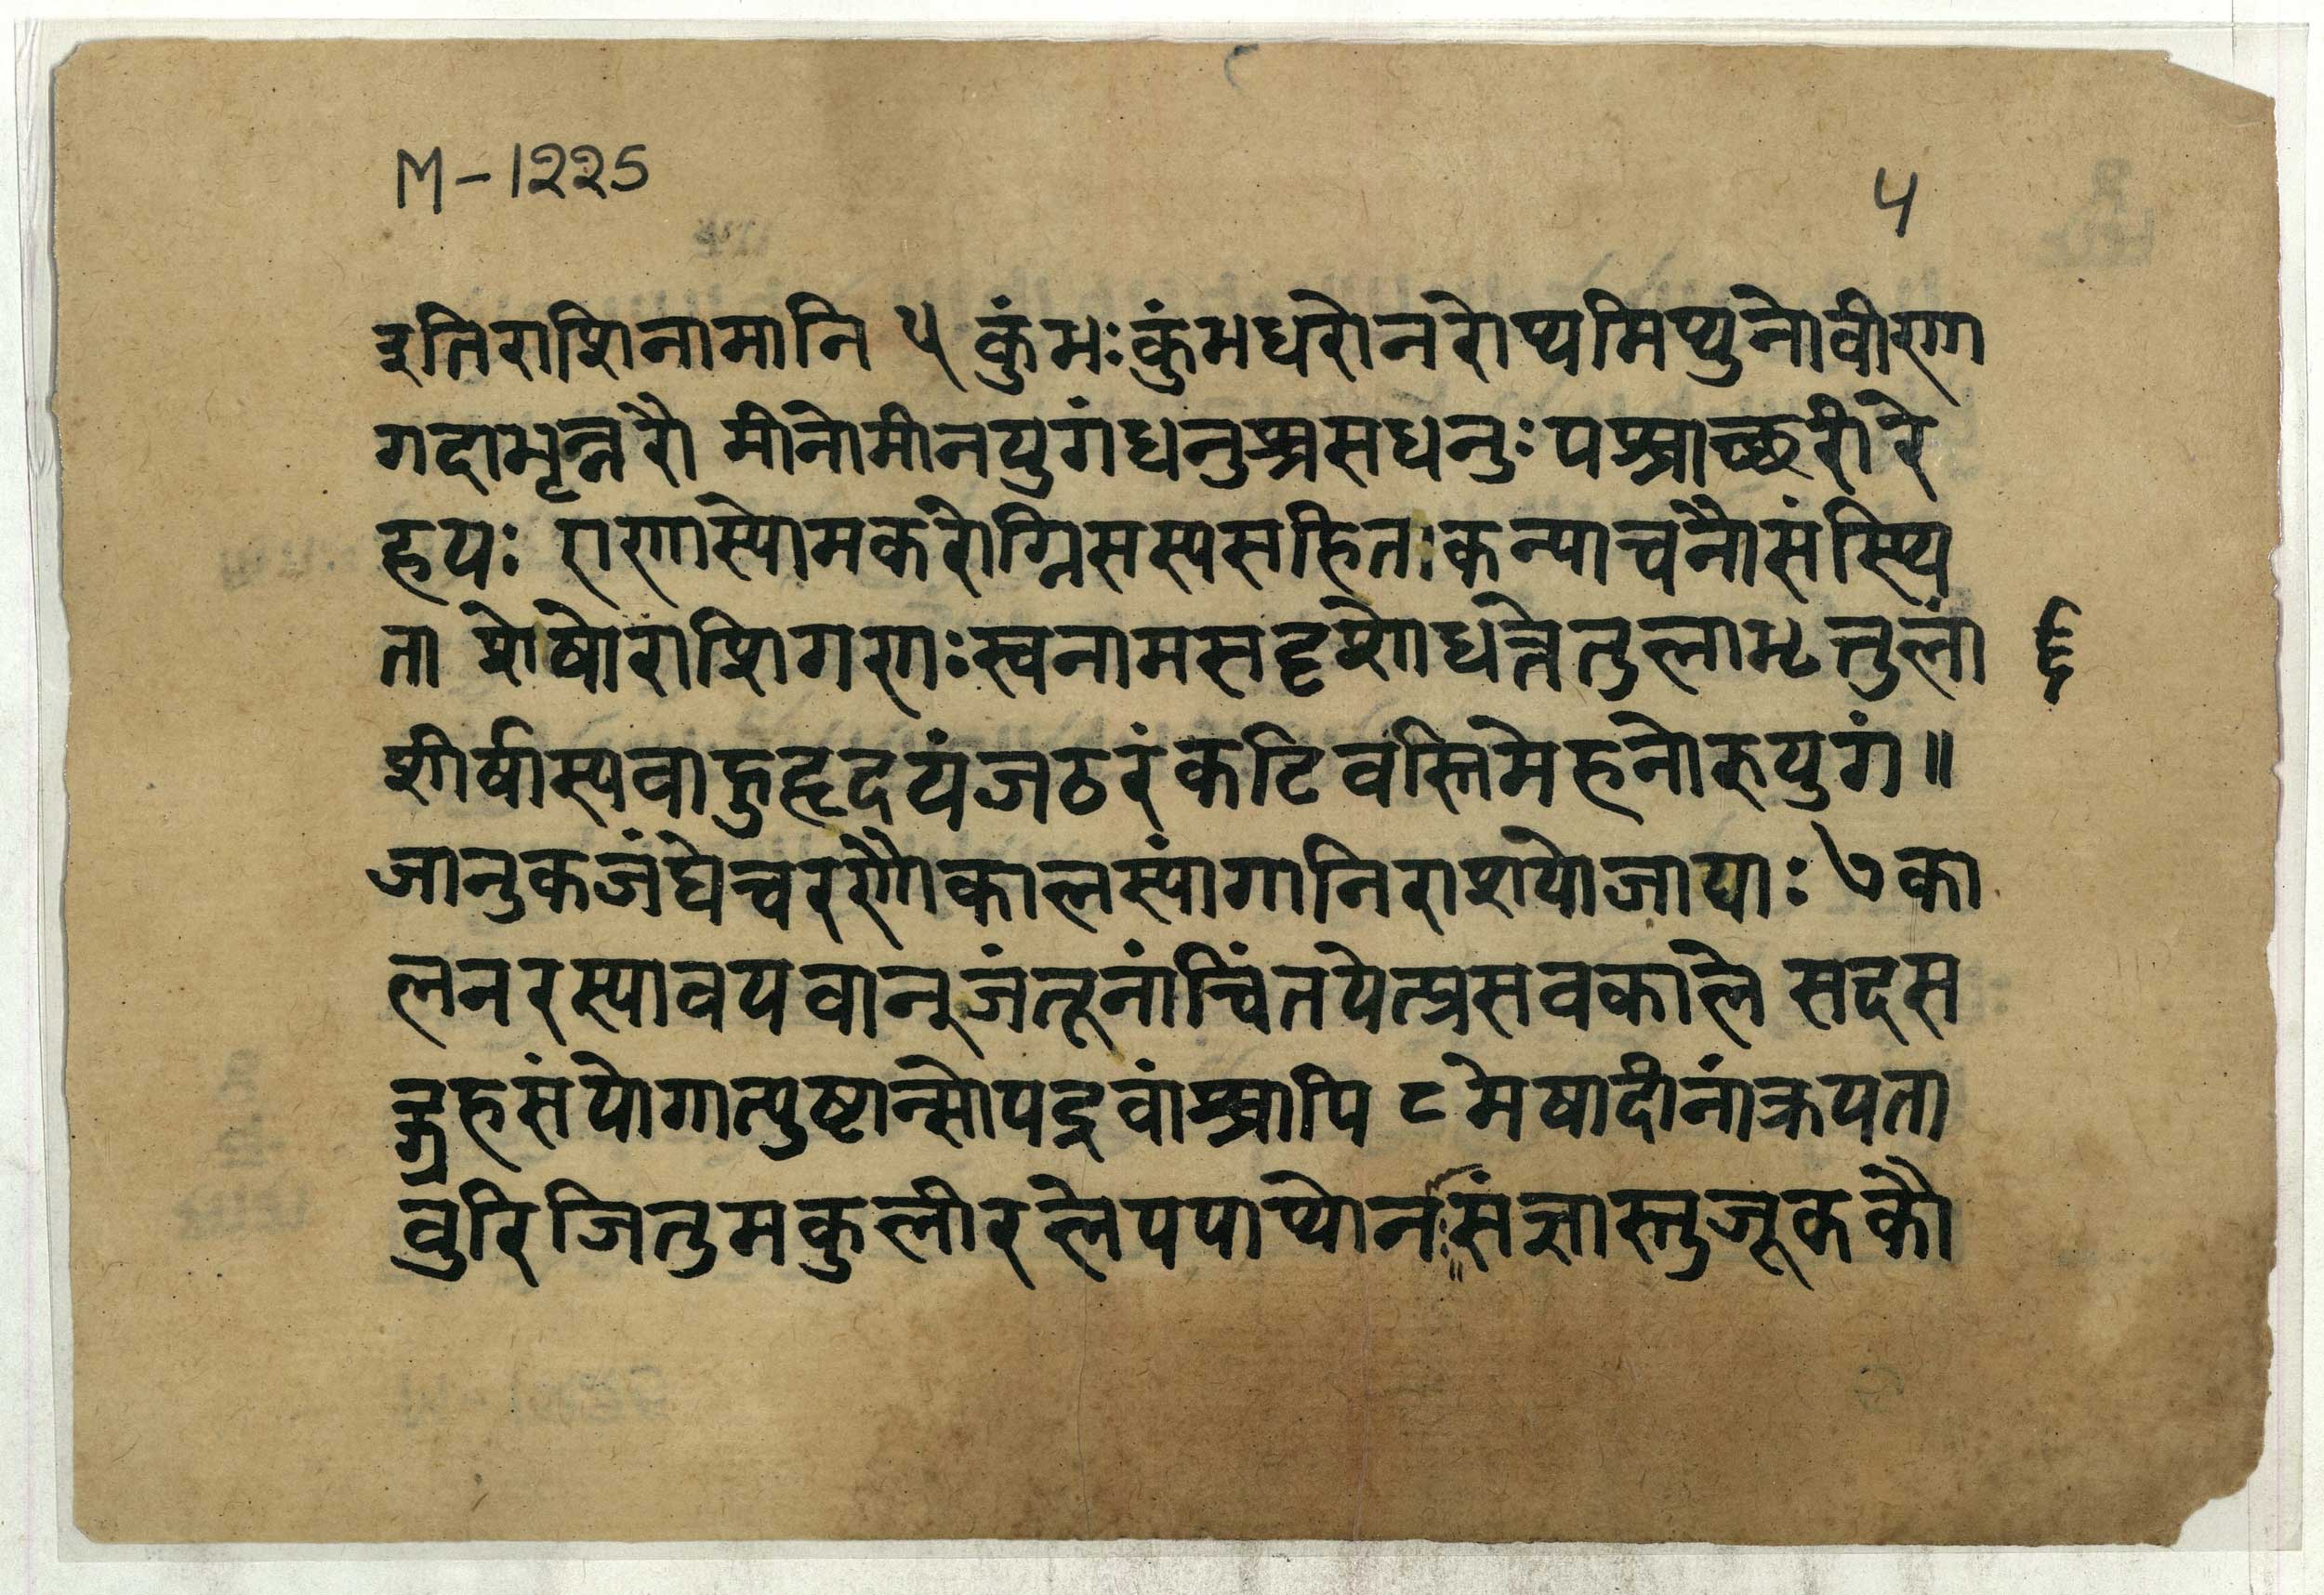 M-1225
५
इतिराशिनामानि ५ कुंभःकुंभधरोनरोथमिथुनोवीणा
गदाभृन्नरौ मीनोमीनयुगंधनुश्चसधनुःपश्चाच्छरीरे
हयः राणास्योमकरोग्निसस्यसहितःकन्याचनौसंस्थि
ता शेषोराशिगणःस्वनामसदृशोधत्तेतुलाभृत्तुलां ६
शीर्षास्यवाहुहृदयंजठरंकटिवस्तिमेहनोरुयुगं॥
जानुकजंघेचरणौकालस्यांगानिराशयोजाद्याः ७ का
लनरस्यावयवान्जंतूनांचिंतयेत्प्रसवकाले सदस
द्ग्रहसंयोगात्पुष्टान्सोपद्रवांश्चापि ८ मेषादीनांक्रयता
वुरिजितुमकुलीरलेपपाथोनसंज्ञास्तुजूककौ